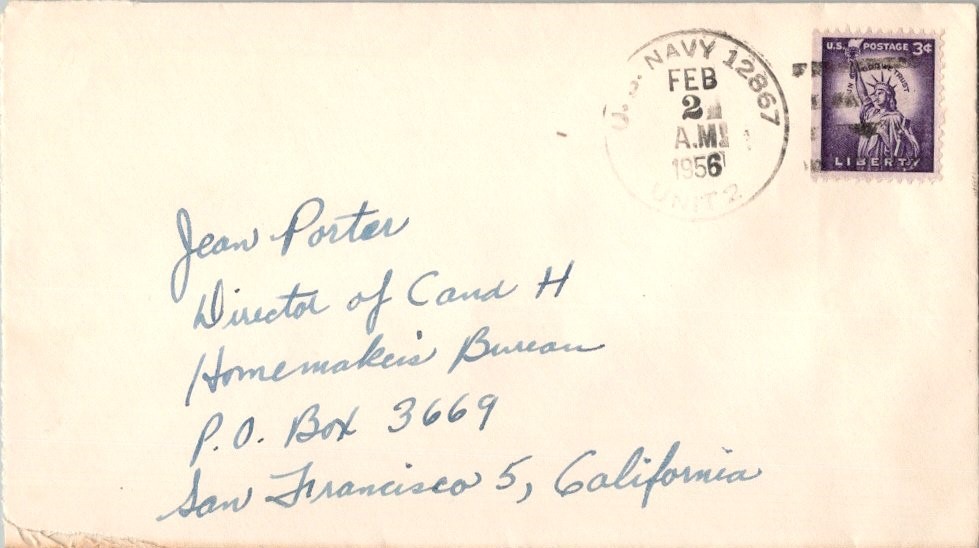 U.S. NAVY 12867
FEB
2
A.M.
1956
UNIT 2
U.S. POSTAGE 3¢
IN GOD WE TRUST
LIBERTY
Jean Porter
Director of C and H
Homemakers Bureau
P.O. Box 3669
San Francisco 5, California